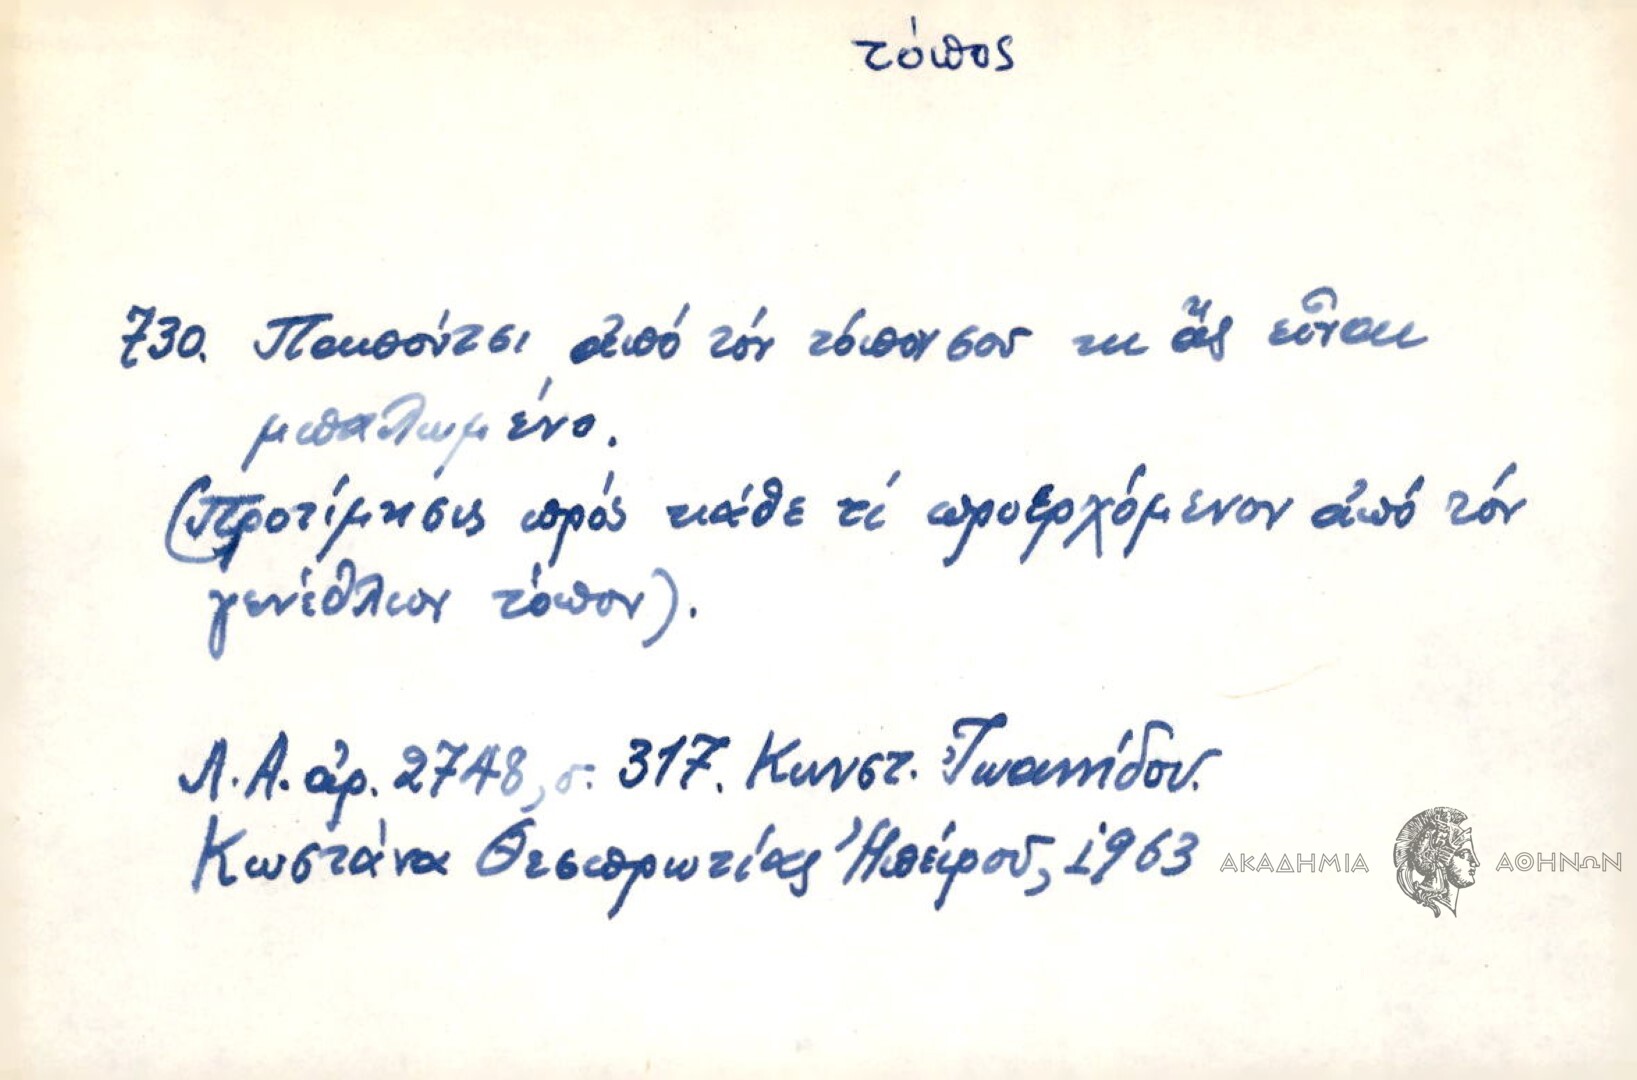 τόπος
730. Παπούτσι ἀπό τόν τόπον σου κι ἄς εἶναι
μπαλωμένο.
(Προτίμησις πρός κάθε τί προερχόμενον ἀπό τόν
γενέθλιον τόπον).
Λ.Α. ἀρ. 2748, σ. 317. Κωνστ. Ἰωαννίδου.
Κωστάνα Θεσπρωτίας Ἠπείρου, 1963
ΑΚΑΔΗΜΙΑ ΑΘΗΝΩΝ